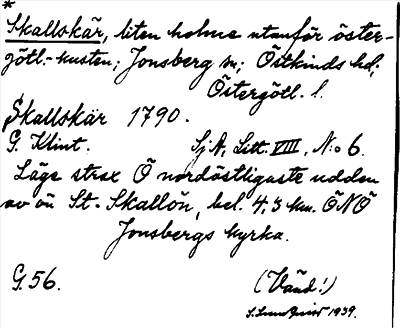 *
Skallskär, liten holme utanför öster-
götl.-kusten; Jonsberg sn; Östkinds hd;
Östergötl. l.
Skallskär 1790.
G. Klint. Sj A, Litt. VIII, N:o 6.
Läge strax Ö nordöstligaste udden
av ön St. Skallön, bel. 4,3 km. ÖNÖ
Jonsbergs kyrka.
G. 56. (Vänd!)
S. Lundqvist 1939.